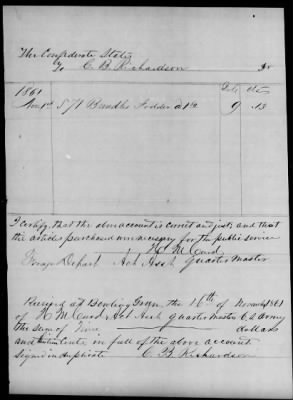 The Confederate States
To C. B. Richardson Dr
Dols cts
1861
Nov 1st 571 Bundles Fodder a 1½ 9 .13
I certify, that the above account is correct and just; and that
the articles purchased were necessary for the public service
H. M. Curd
Forage Depart Act Asst Quarter Master
Received at Bowling Green the 16th of November 1861
of H M Curd Act Asst Quarter Master C S Army
the sum of Nine dollars
and cents in full of the above account
Signed in duplicate
C. B. Richardson